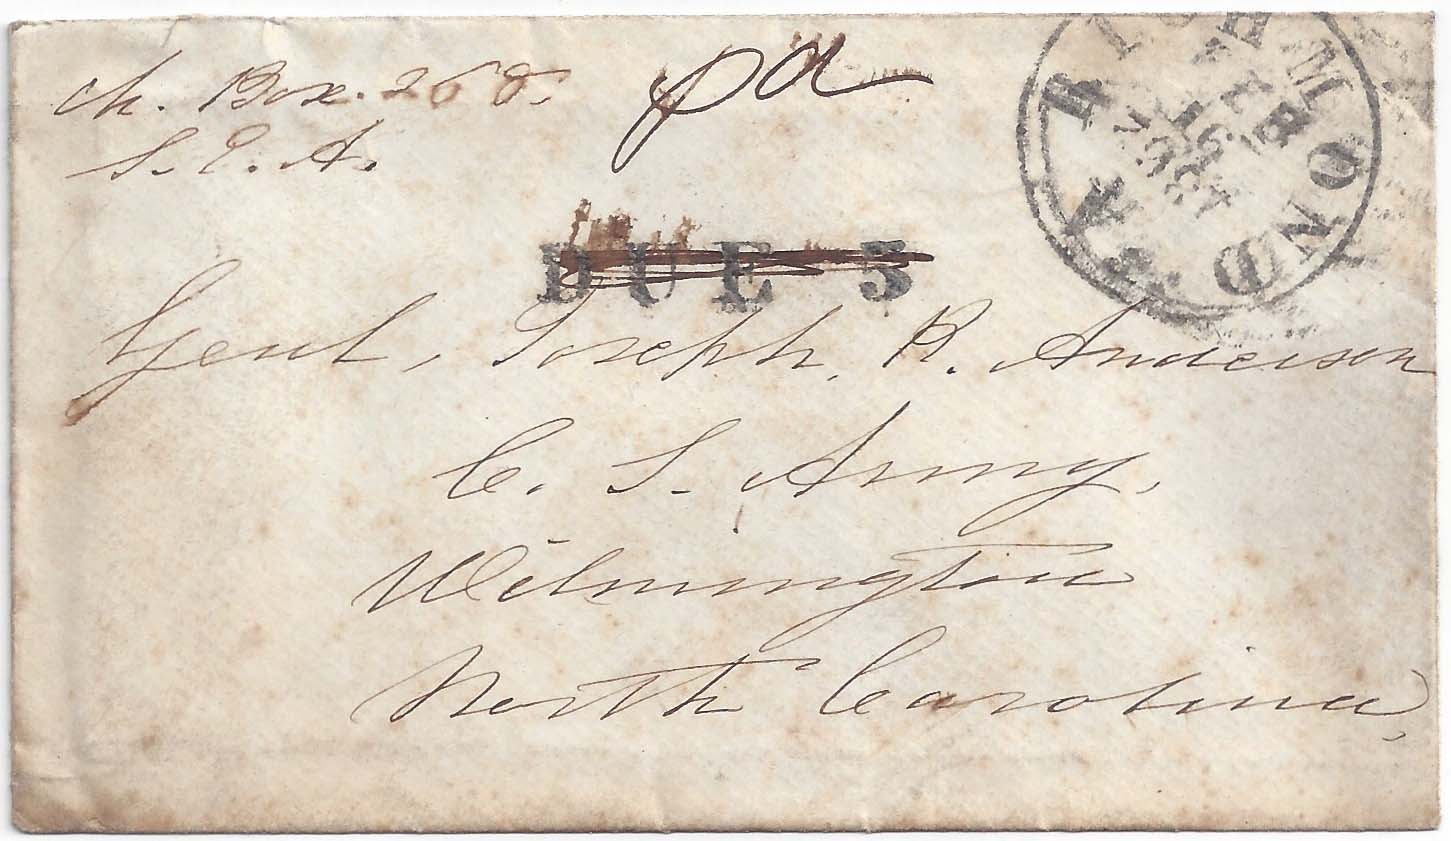 ch. Box. 268.
S. E. A.
pd
RICHMOND VA.
DUE 5
Genl, Joseph, R. Anderson
C. S. Army,
Wilmington
North Carolina,